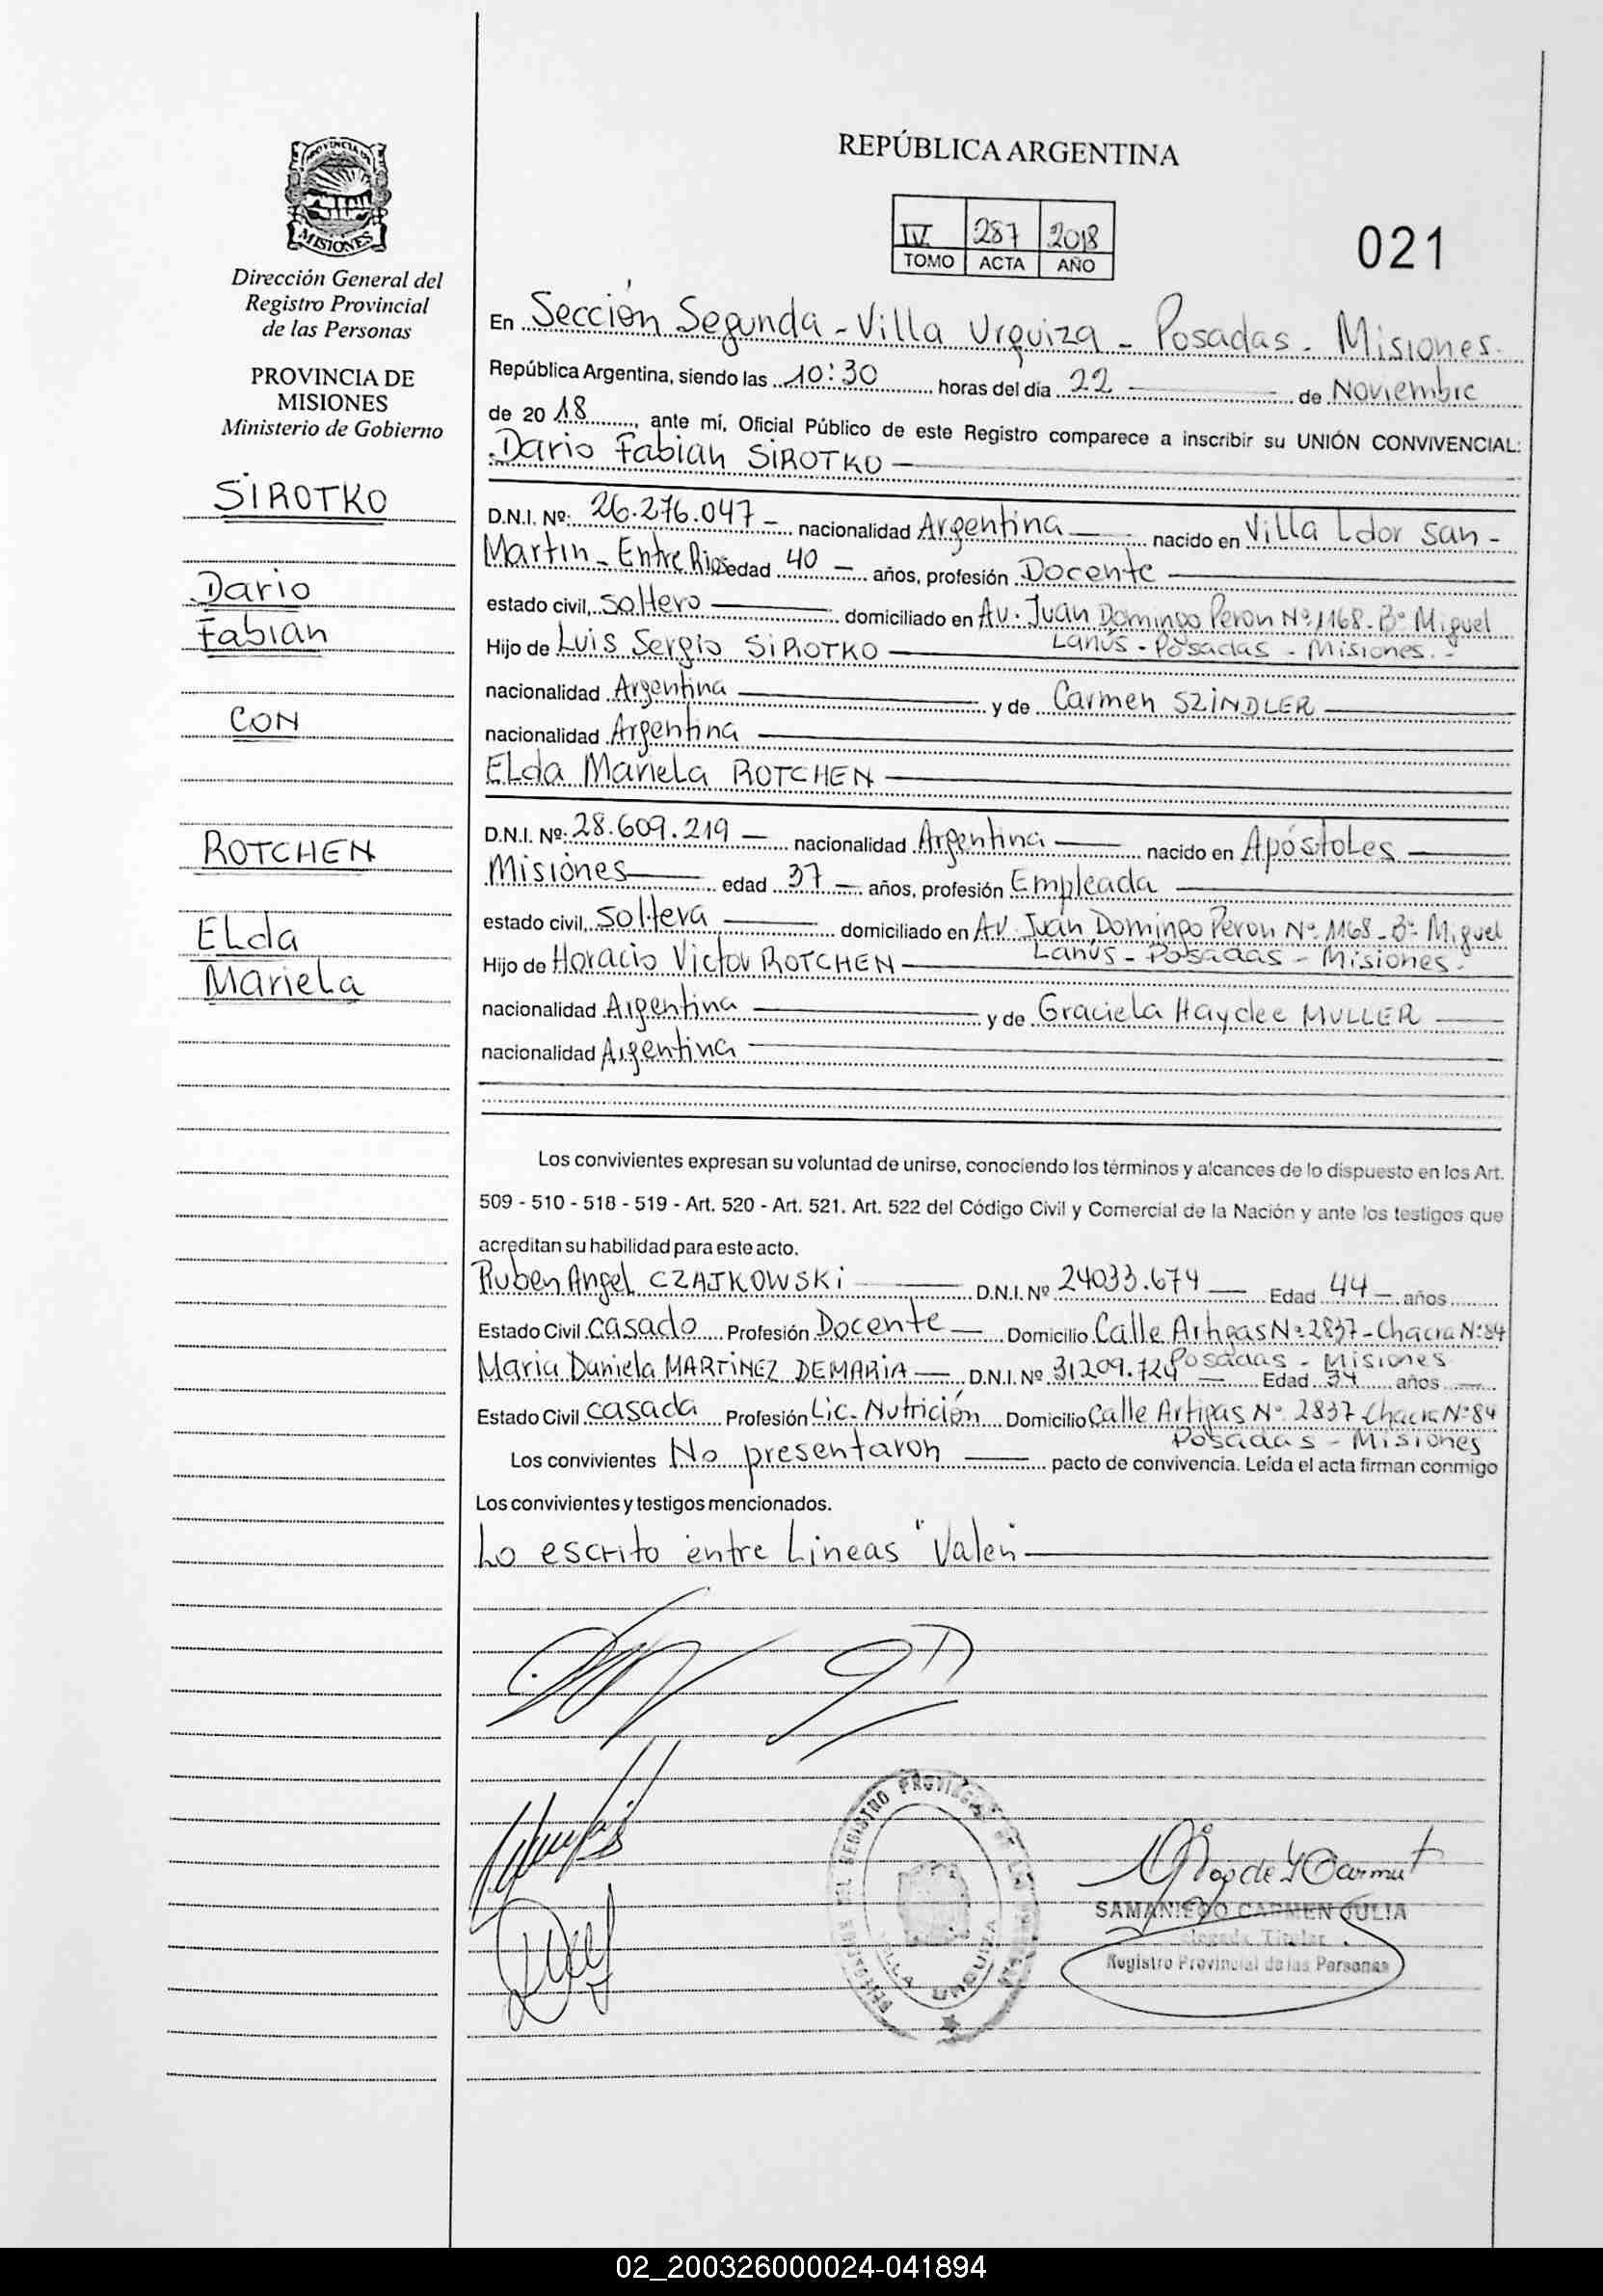 PROVINCIA DE
MISIONES
Dirección General del
Registro Provincial
de las Personas
PROVINCIA DE
MISIONES
Ministerio de Gobierno
SIROTKO
Dario
Fabian
CON
ROTCHEN
Elda
Mariela
REPÚBLICA ARGENTINA
IV 287 2018
TOMO ACTA AÑO
021
En Sección Segunda - Villa Urquiza - Posadas - Misiones.
República Argentina, siendo las 10:30 horas del día 22 de Noviembre
de 2018, ante mí, Oficial Público de este Registro comparece a inscribir su UNIÓN CONVIVENCIAL:
Dario Fabian SIROTKO
D.N.I. Nº: 26.276.047 - nacionalidad Argentina nacido en Villa Ldor San -
Martin - Entre Rios edad 40 - años, profesión Docente
estado civil, soltero domiciliado en Av. Juan Domingo Peron Nº 1168 - Bº Miguel
Lanús - Posadas - Misiones. -
Hijo de Luis Sergio SIROTKO
nacionalidad Argentina y de Carmen SZINDLER
nacionalidad Argentina
Elda Mariela ROTCHEN
D.N.I. Nº: 28.609.219 - nacionalidad Argentina nacido en Apóstoles
Misiones edad 37 - años, profesión Empleada
estado civil, soltera domiciliado en Av. Juan Domingo Peron Nº 1168 - Bº Miguel
Lanús - Posadas - Misiones.
Hijo de Horacio Victor ROTCHEN
nacionalidad Argentina y de Graciela Haydee MULLER
nacionalidad Argentina
Los convivientes expresan su voluntad de unirse, conociendo los términos y alcances de lo dispuesto en los Art.
509 - 510 - 518 - 519 - Art. 520 - Art. 521. Art. 522 del Código Civil y Comercial de la Nación y ante los testigos que
acreditan su habilidad para este acto.
Ruben Angel CZAJKOWSKI D.N.I. Nº 24033.674 Edad 44 - años
Estado Civil casado Profesión Docente Domicilio Calle Artigas Nº 2837 - Chacra Nº 84
Posadas - Misiones
Maria Daniela MARTINEZ DEMARIA D.N.I. Nº 31209.724 Edad 34 años
Estado Civil casada Profesión Lic. Nutrición Domicilio Calle Artigas Nº 2837 Chacra Nº 84
Posadas - Misiones
Los convivientes No presentaron pacto de convivencia. Leída el acta firman conmigo
Los convivientes y testigos mencionados.
Lo escrito entre Lineas "Valen
VILLA URQUIZA
SAMANIEGO CARMEN JULIA
Titular
Registro Provincial de las Personas
02_200326000024-041894